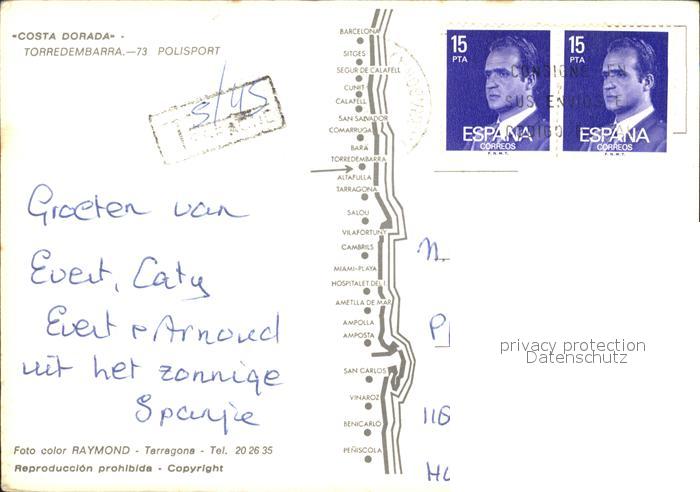 «COSTA DORADA» -
TORREDEMBARRA.—73 POLISPORT
5/45
Groeten van
Evert, Caty
Evert & Arnoud
uit het zonnige
Spanje
Foto color RAYMOND - Tarragona - Tel. 20 26 35
Reproducción prohibida - Copyright
BARCELONA
SITGES
SEGUR DE CALAFELL
CUNIT
CALAFELL
SAN SALVADOR
COMARRUGA
BARÁ
TORREDEMBARRA
ALTAFULLA
TARRAGONA
SALOU
VILAFORTUNY
CAMBRILS
MIAMI-PLAYA
HOSPITALET DEL I.
AMETLLA DE MAR
AMPOLLA
AMPOSTA
SAN CARLOS
VINAROZ
BENICARLO
PEÑISCOLA
15 PTA
ESPAÑA
CORREOS
F.N.M.T.
15 PTA
ESPAÑA
CORREOS
F.N.M.T.
CONSIGNE EN
SUS ENVIOS E
privacy protection
Datenschutz